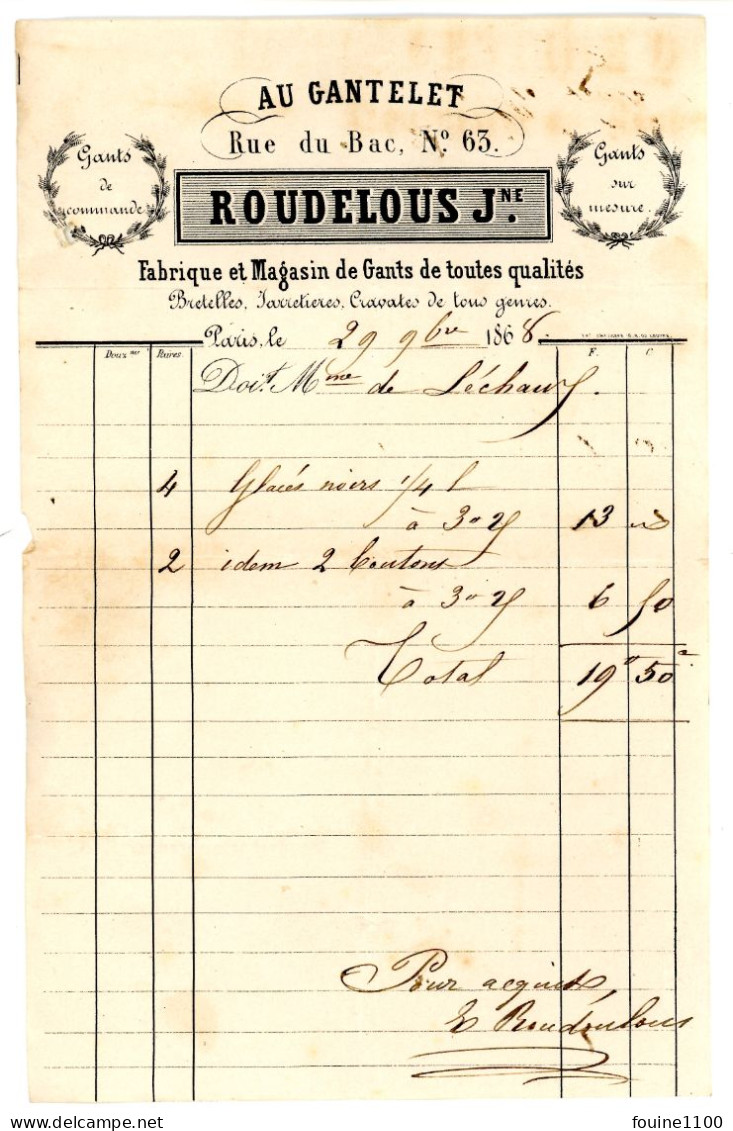 AU GANTELET
Rue du Bac, Nº 63.
Gants
de
commande
ROUDELOUS JNE.
Gants
sur
mesure.
Fabrique et Magasin de Gants de toutes qualités
Bretelles, Jarretieres, Cravates de tous genres.
Paris, le 29 9bre 1868.
Douznes Paires. F. C.
Doit Mme de
4 Glacés noirs 1/4 l
à 3" 25 13 "
2 idem 2 boutons
à 3" 25 6 50
Total 19" 50c
Pour acquit,
Roudoulous
fouine1100